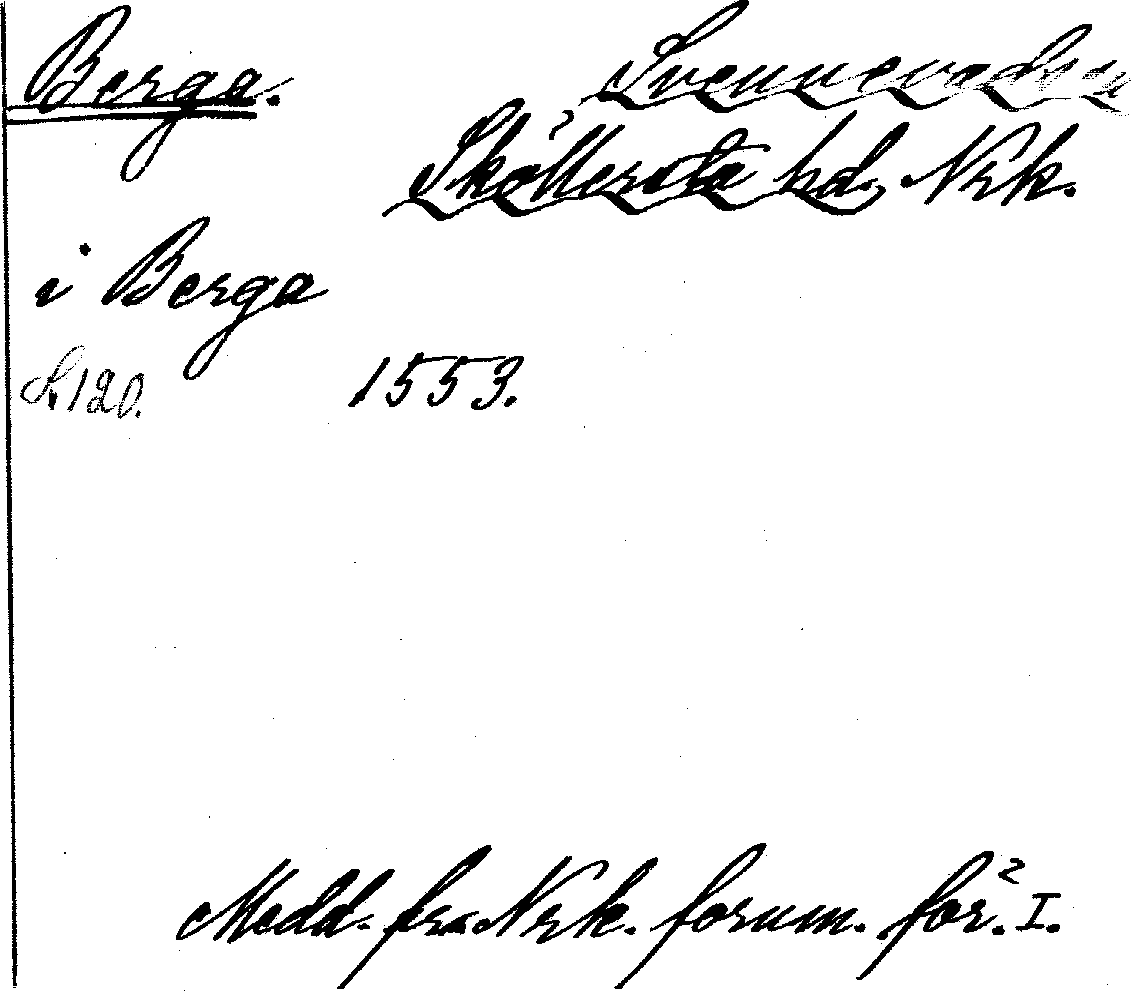 Berga. Svennevads sn
Sköllersta hd, Nrk.
i Berga
S. 120. 1553.
Medd. fra Nrk. fornm. för. I.